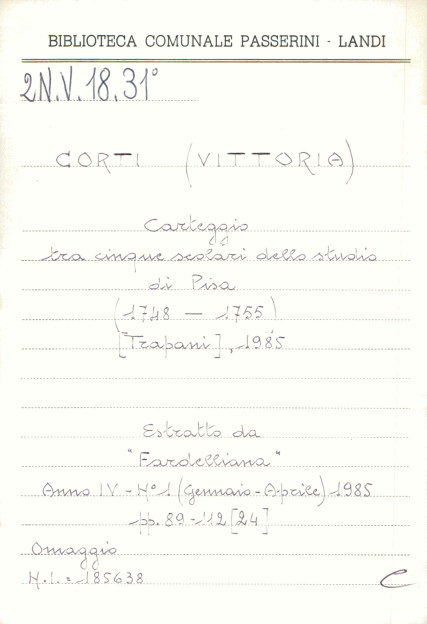 BIBLIOTECA COMUNALE PASSERINI - LANDI
2N.V.18.31°
CORTI (VITTORIA)
Carteggio
tra cinque scolari dello studio
di Pisa
(1748 — 1755)
[Trapani], 1985
Estratto da
"Fardelliana"
Anno IV - N° 1 (Gennaio-Aprile) 1985
pp. 89-112 [24]
Omaggio
N.I. = 185638
C